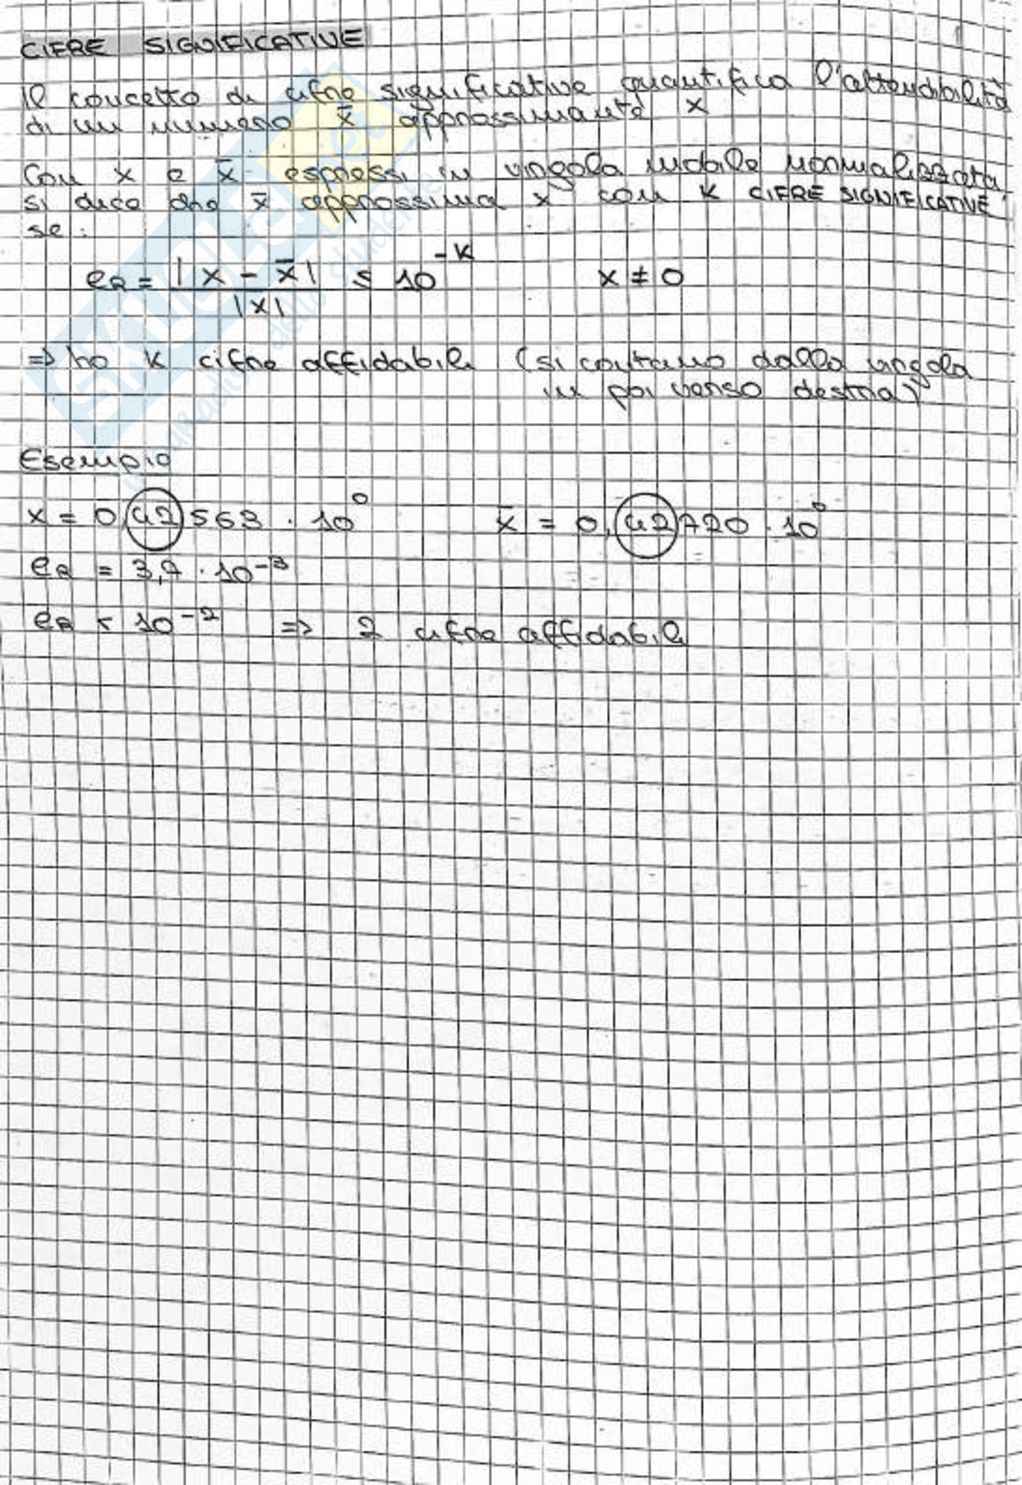 CIFRE SIGNIFICATIVE
Il concetto di cifre significative quantifica l'attendibilità
di un numero x̄ approssimante x
Con x e x̄ espressi in virgola mobile normalizzata
si dice che x̄ approssima x con K CIFRE SIGNIFICATIVE
se:
eR = |x - x̄| / |x| ≤ 10^-K x ≠ 0
=> ho K cifre affidabili (si contano dalla virgola
in poi verso destra)
Esempio
x = 0,42563 · 10^0 x̄ = 0,42720 · 10^0
eR = 3,7 · 10^-3
eR < 10^-2 => 2 cifre affidabili